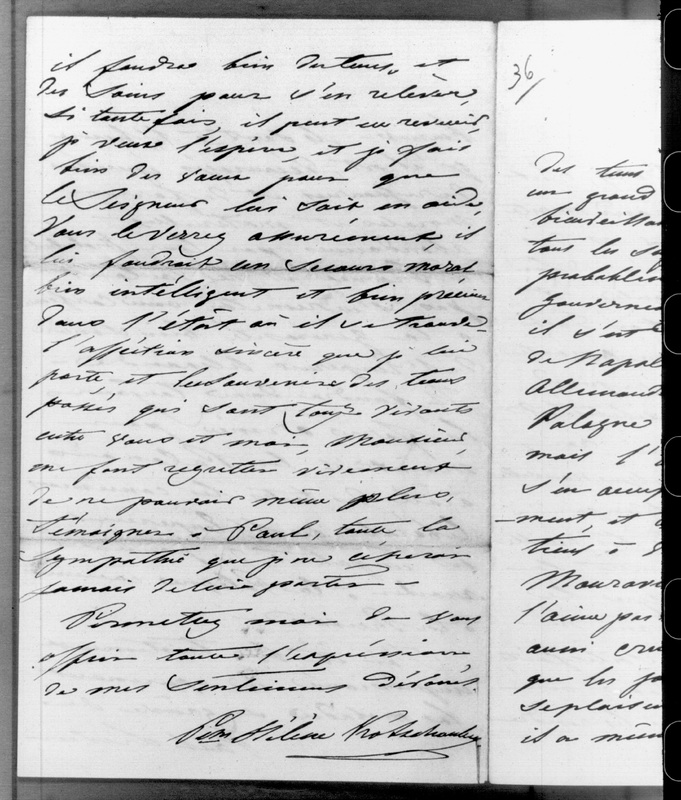 il faudra bien du tems, et
des soins pour s'en relever,
si toute fois, il peut en revenir,
je veux l'espérer, et je fais
bien des vœux pour que
le Seigneur lui soit en aide,
Vous le verrez assurément, il
lui faudrait un secours moral
bien intelligent et bien précieux
dans l'état où il se trouve –
l'affection sincère que je lui
porte, et les souvenirs des tems
passés qui sont toujrs vivants
entre vous et moi, Monsieur,
me font regretter vivement
de ne pouvoir même plus,
témoigner à Paul, toute la
sympathie que je ne cesserai
jamais de lui porter –
Permettez moi de vous
offrir toute l'expression
de mes sentiments dévoués.
Pss Hélène Kotschoubey
36
des tems
un grand
bienveillan
tous les
probablem
Gouverne
il s'est
de Napol
Allemande
Pologne
mais l'
s'en
ment, et
tiens à
Mouravi
l'aime pas
aussi cru
que les
se plaisen
il a même